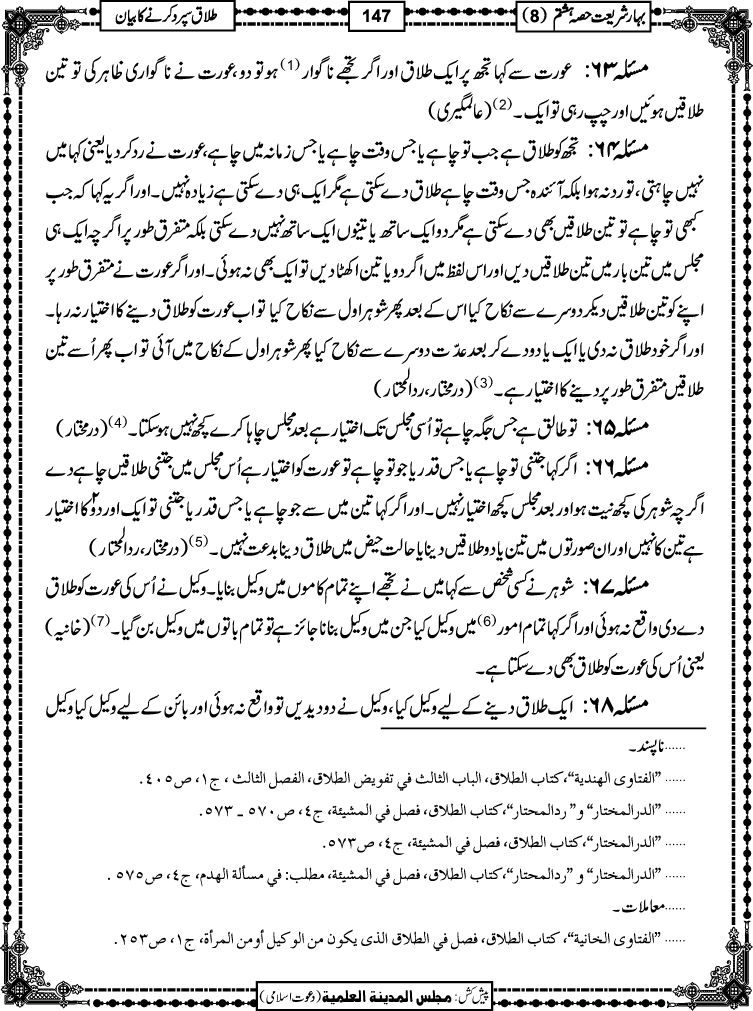 بہار شریعت حصہ ہشتم (8)
147
طلاق سپرد کرنے کا بیان
مسئلہ ۶۳: عورت سے کہا تجھ پر ایک طلاق اور اگر تجھے ناگوار (1) ہو تو دو، عورت نے ناگواری ظاہر کی تو تین
طلاقیں ہوئیں اور چپ رہی تو ایک۔(2) (عالمگیری)
مسئلہ ۶۴: تجھ کو طلاق ہے جب تو چاہے یا جس وقت چاہے یا جس زمانہ میں چاہے، عورت نے رد کردیا یعنی کہا میں
نہیں چاہتی، تو رد نہ ہوا بلکہ آئندہ جس وقت چاہے طلاق دے سکتی ہے مگر ایک ہی دے سکتی ہے زیادہ نہیں۔ اور اگر یہ کہا کہ جب
کبھی تو چاہے تو تین طلاقیں بھی دے سکتی ہے مگر دو ایک ساتھ یا تینوں ایک ساتھ نہیں دے سکتی بلکہ متفرق طور پر اگرچہ ایک ہی
مجلس میں تین بار میں تین طلاقیں دیں اور اس لفظ میں اگر دو یا تین اکھٹا دیں تو ایک بھی نہ ہوئی۔ اور اگر عورت نے متفرق طور پر
اپنے کو تین طلاقیں دیکر دوسرے سے نکاح کیا اس کے بعد پھر شوہر اول سے نکاح کیا تو اب عورت کو طلاق دینے کا اختیار نہ رہا۔
اور اگر خود طلاق نہ دی یا ایک یا دو دے کر بعد عدّت دوسرے سے نکاح کیا پھر شوہر اول کے نکاح میں آئی تو اب پھر اُسے تین
طلاقیں متفرق طور پر دینے کا اختیار ہے۔(3) (درمختار، ردالمحتار)
مسئلہ ۶۵: تو طالق ہے جس جگہ چاہے تو اُسی مجلس تک اختیار ہے بعد مجلس چاہا کرے کچھ نہیں ہو سکتا۔(4) (درمختار)
مسئلہ ۶۶: اگر کہا جتنی تو چاہے یا جس قدر یا جو تو چاہے تو عورت کو اختیار ہے اُس مجلس میں جتنی طلاقیں چاہے دے
اگرچہ شوہر کی کچھ نیت ہو اور بعد مجلس کچھ اختیار نہیں۔ اور اگر کہا تین میں سے جو چاہے یا جس قدر یا جتنی تو ایک اور دو۲ کا اختیار
ہے تین کا نہیں اور ان صورتوں میں تین یا دو طلاقیں دینا یا حالت حیض میں طلاق دینا بدعت نہیں۔(5) (درمختار، ردالمحتار)
مسئلہ ۶۷: شوہر نے کسی شخص سے کہا میں نے تجھے اپنے تمام کاموں میں وکیل بنایا۔ وکیل نے اُس کی عورت کو طلاق
دے دی واقع نہ ہوئی اور اگر کہا تمام امور (6) میں وکیل کیا جن میں وکیل بنانا جائز ہے تو تمام باتوں میں وکیل بن گیا۔(7) (خانیہ)
یعنی اُس کی عورت کو طلاق بھی دے سکتا ہے۔
مسئلہ ۶۸: ایک طلاق دینے کے لیے وکیل کیا، وکیل نے دو دیدیں تو واقع نہ ہوئی اور بائن کے لیے وکیل کیا وکیل
......ناپسند۔
......"الفتاوی الهندية"، كتاب الطلاق، الباب الثالث في تفويض الطلاق، الفصل الثالث ، ج۱، ص۴۰۵.
......"الدرالمختار" و "ردالمحتار"، كتاب الطلاق، فصل في المشيئة، ج٤، ص٥٧٠ ـ ٥٧٣.
......"الدرالمختار"، كتاب الطلاق، فصل في المشيئة، ج٤، ص٥٧٣.
......"الدرالمختار" و "ردالمحتار"، كتاب الطلاق، فصل في المشيئة، مطلب: في مسألة الهدم، ج٤، ص٥٧٥ .
......معاملات۔
......"الفتاوی الخانية"، كتاب الطلاق، فصل في الطلاق الذی يكون من الوكيل أومن المرأة، ج۱، ص۲۵۳.
پیش کش: مجلس المدينة العلمية (دعوت اسلامی)